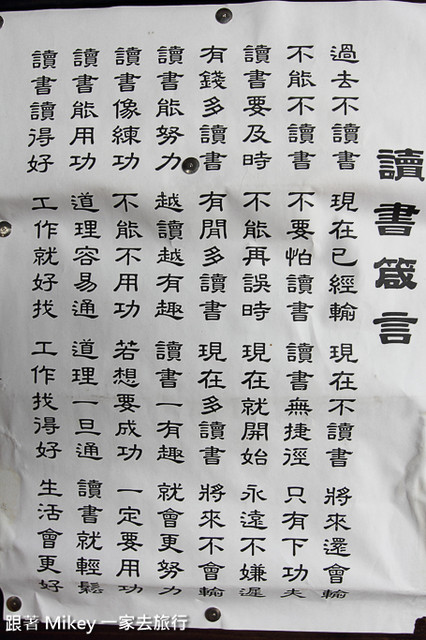 讀書箴言
過去不讀書 現在已經輸 現在不讀書 將來還會輸
不能不讀書 不要怕讀書 讀書無捷徑 只有下功夫
讀書要及時 不能再誤時 現在就開始 永遠不嫌遲
有錢多讀書 有閒多讀書 現在多讀書 將來不會輸
讀書能努力 越讀越有趣 讀書一有趣 就會更努力
讀書像練功 不能不用功 若想要成功 一定要用功
讀書能用功 道理容易通 道理一旦通 讀書就輕鬆
讀書讀得好 工作就好找 工作找得好 生活會更好
跟著 Mikey 一家去旅行